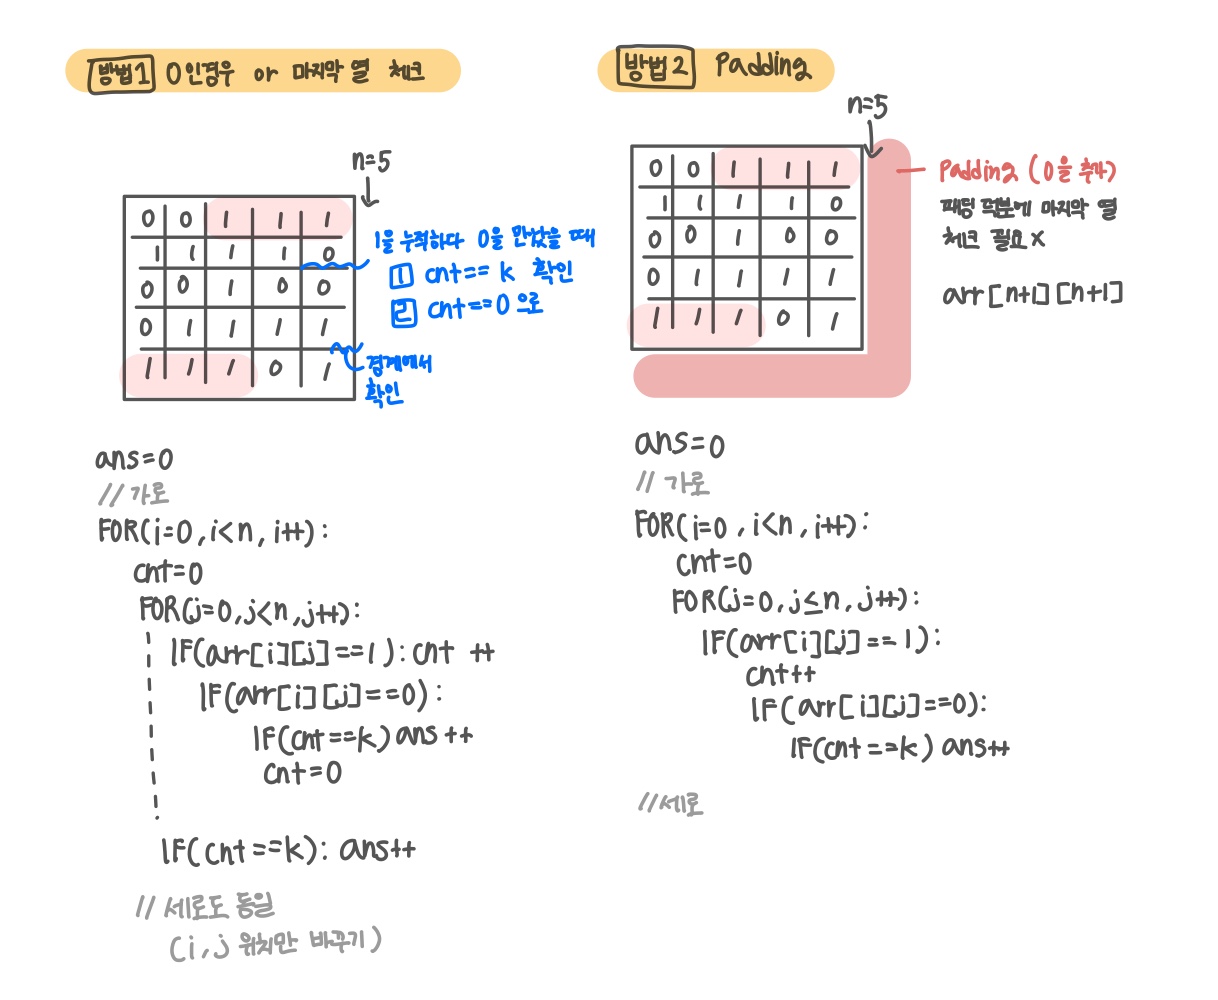 방법1 0인경우 or 마지막 열 체크
n=5
0 0 1 1 1
1 1 1 1 0
0 0 1 0 0
0 1 1 1 1
1 1 1 0 1
1을 누적하다 0을 만났을 때
1 cnt== k 확인
2 cnt==0 으로
경계에서
확인
ans=0
// 가로
FOR(i=0, i<n, i++):
cnt=0
FOR(j=0, j<n, j++):
IF(arr[i][j]==1): cnt ++
IF(arr[i][j]==0):
IF(cnt==k) ans++
cnt=0
IF(cnt==k): ans++
// 세로도 동일
(i, j 위치만 바꾸기)
방법2 Padding
n=5
0 0 1 1 1
1 1 1 1 0
0 0 1 0 0
0 1 1 1 1
1 1 1 0 1
Padding (0을 추가)
패딩 덕분에 마지막 열
체크 필요 X
arr[n+1][n+1]
ans=0
// 가로
FOR(i=0, i<n, i++):
cnt=0
FOR(j=0, j≤n, j++):
IF(arr[i][j]==1):
cnt++
IF(arr[i][j]==0):
IF(cnt==k) ans++
//세로